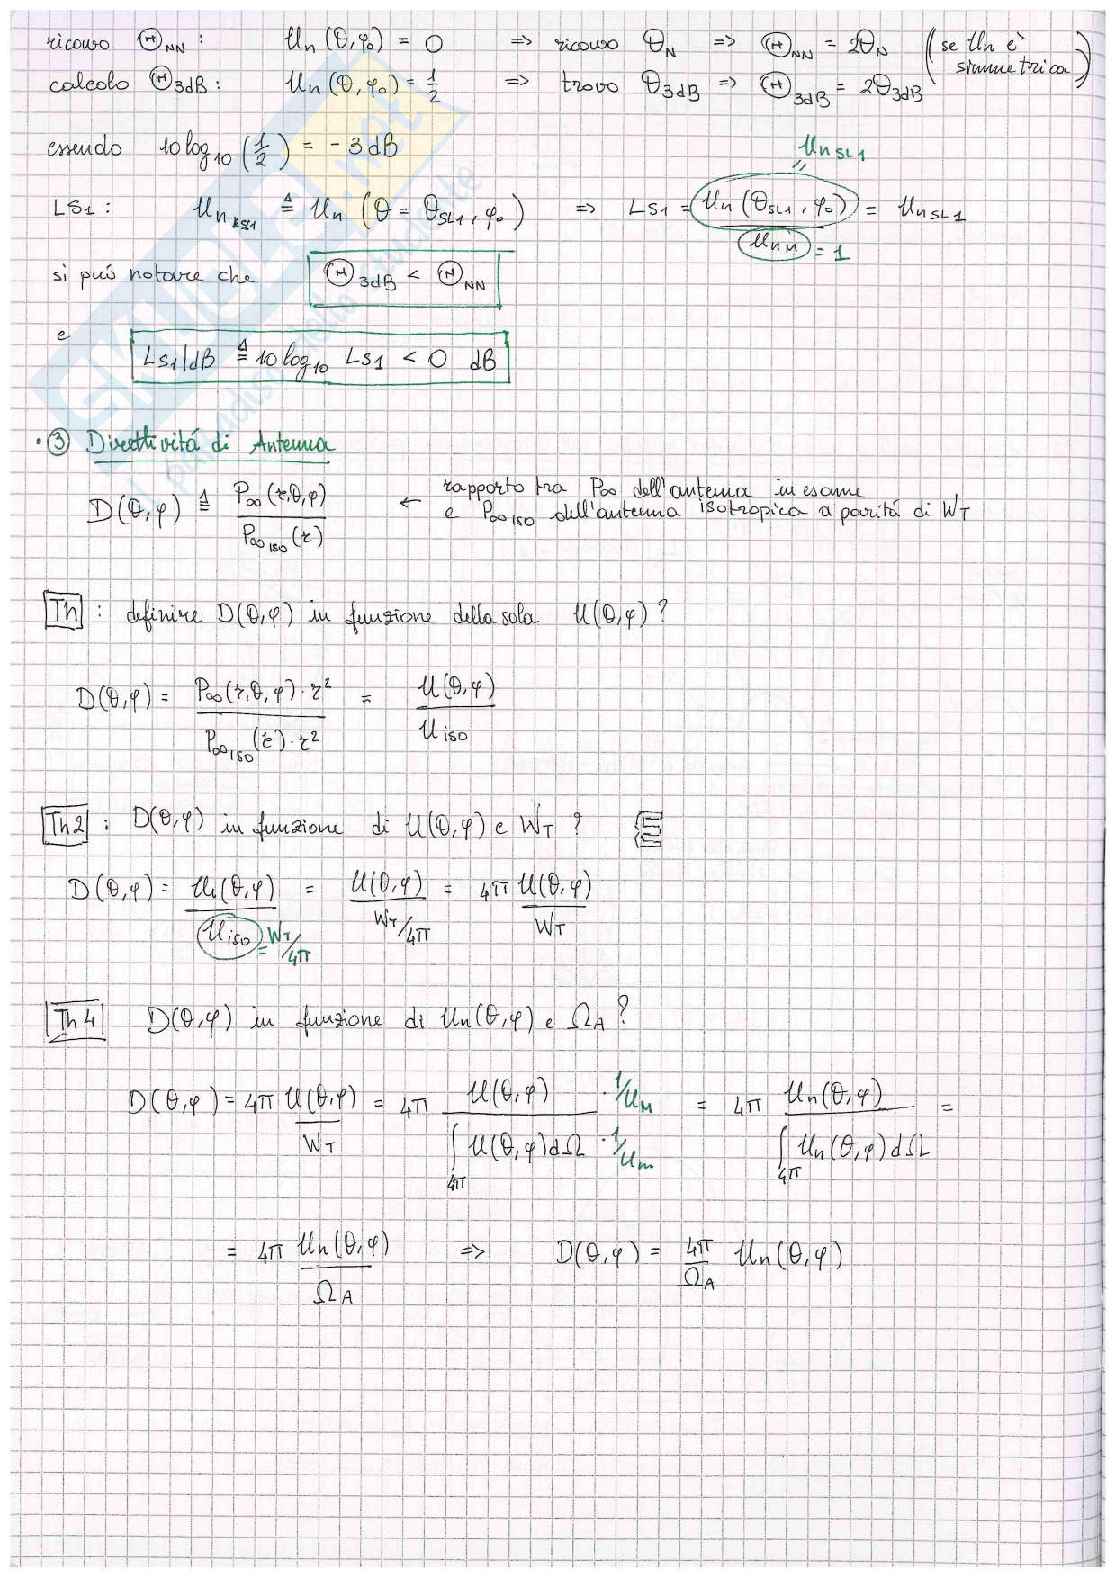 ricavo Θ_NN : Un(θ,φ₀) = 0 ⇒ ricavo θ_N ⇒ Θ_NN = 2θ_N (se Un è simmetrica)
calcolo Θ_3dB : Un(θ,φ₀) = 1/2 ⇒ trovo θ_3dB ⇒ Θ_3dB = 2θ_3dB
essendo 10 log₁₀ (1/2) = - 3 dB
Un_SL1
LS₁ : Un_SL1 ≜ Un (θ = θ_SL1, φ₀) ⇒ LS₁ = Un(θ_SL1, φ₀) / Un = Un_SL1
= 1
si può notare che Θ_3dB < Θ_NN
e
LS₁|dB ≜ 10 log₁₀ LS₁ < 0 dB
• ③ Direttività di Antenna
D(θ,φ) ≜ P∞(r,θ,φ) / P∞_ISO(r) ← rapporto tra P∞ dell'antenna in esame
e P∞_ISO dell'antenna isotropica a parità di W_T
Th : definire D(θ,φ) in funzione della sola U(θ,φ) ?
D(θ,φ) = P∞(r,θ,φ)·r² / P∞_ISO(r)·r² = U(θ,φ) / U_ISO
Th2 : D(θ,φ) in funzione di U(θ,φ) e W_T ?
D(θ,φ) = U(θ,φ) / U_iso = U(θ,φ) / W_T/4π = 4π U(θ,φ) / W_T
= W_T/4π
Th4 D(θ,φ) in funzione di Un(θ,φ) e Ω_A ?
D(θ,φ) = 4π U(θ,φ) / W_T = 4π U(θ,φ) · 1/U_M / ∫_4π U(θ,φ) dΩ · 1/U_m = 4π Un(θ,φ) / ∫_4π Un(θ,φ) dΩ =
= 4π Un(θ,φ) / Ω_A ⇒ D(θ,φ) = 4π/Ω_A Un(θ,φ)